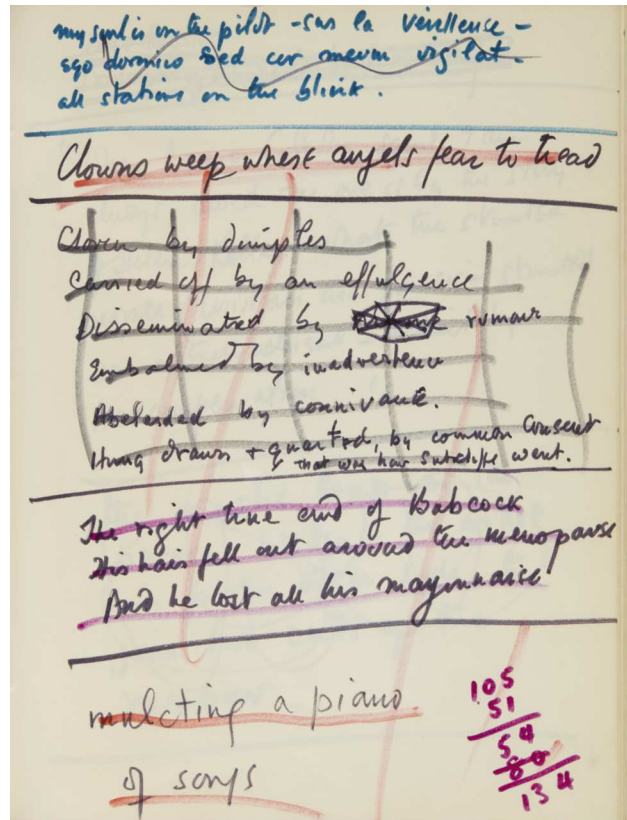 my soul is on the pilot - sur la veilleuse -
ego dormio sed cor meum vigilat.
all stations on the blink.
Clowns weep where angels fear to tread
Cloven by dimples
Carried off by an effulgence
Disseminated by rumour
Embalmed by inadvertence
Abelarded by connivance.
Hung drawn + quart'd, by common consent
that was how Sutcliffe went.
The right true end of Babcock
His hair fell out around the menopause
And he lost all his mayonnaise!
mulcting a piano
of songs
105
51
54
80
134